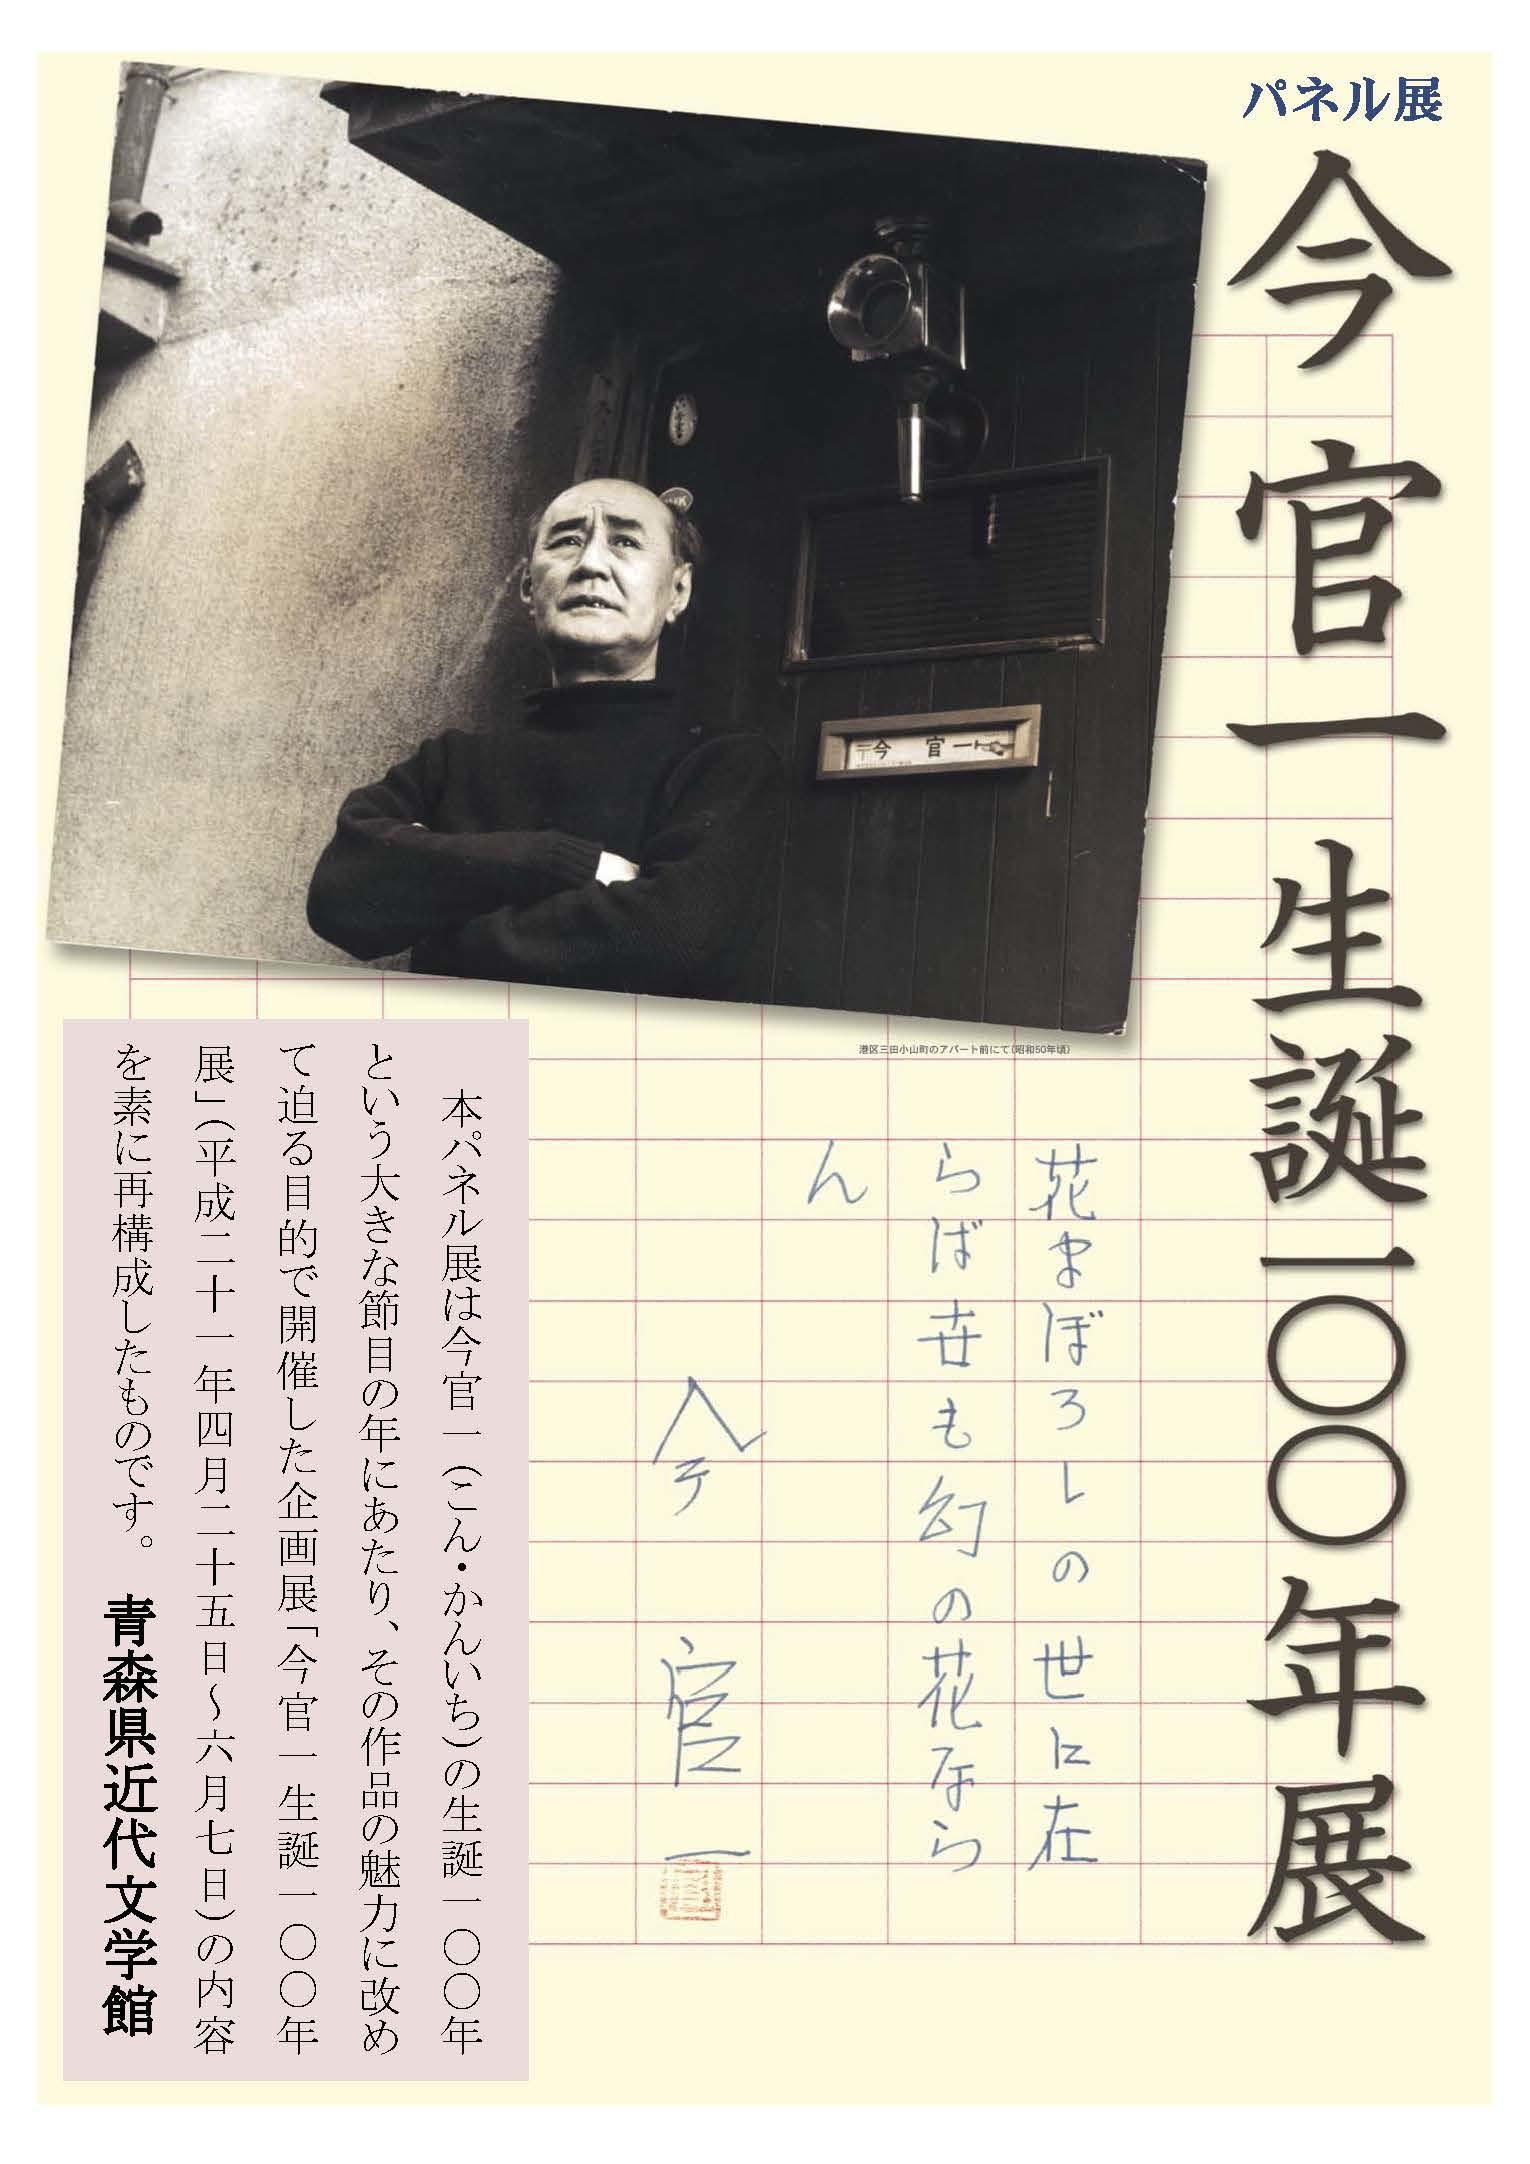 パネル展
今官一生誕一〇〇年展
〒今 官一
港区三田小山町のアパート前にて(昭和50年頃)
花まぼろしの世に在
らば世も幻の花なら
ん
今官一
本パネル展は今官一（こん・かんいち）の生誕一〇〇年
という大きな節目の年にあたり、その作品の魅力に改め
て迫る目的で開催した企画展「今官一生誕一〇〇年
展」（平成二十一年四月二十五日～六月七日）の内容
を素に再構成したものです。 青森県近代文学館